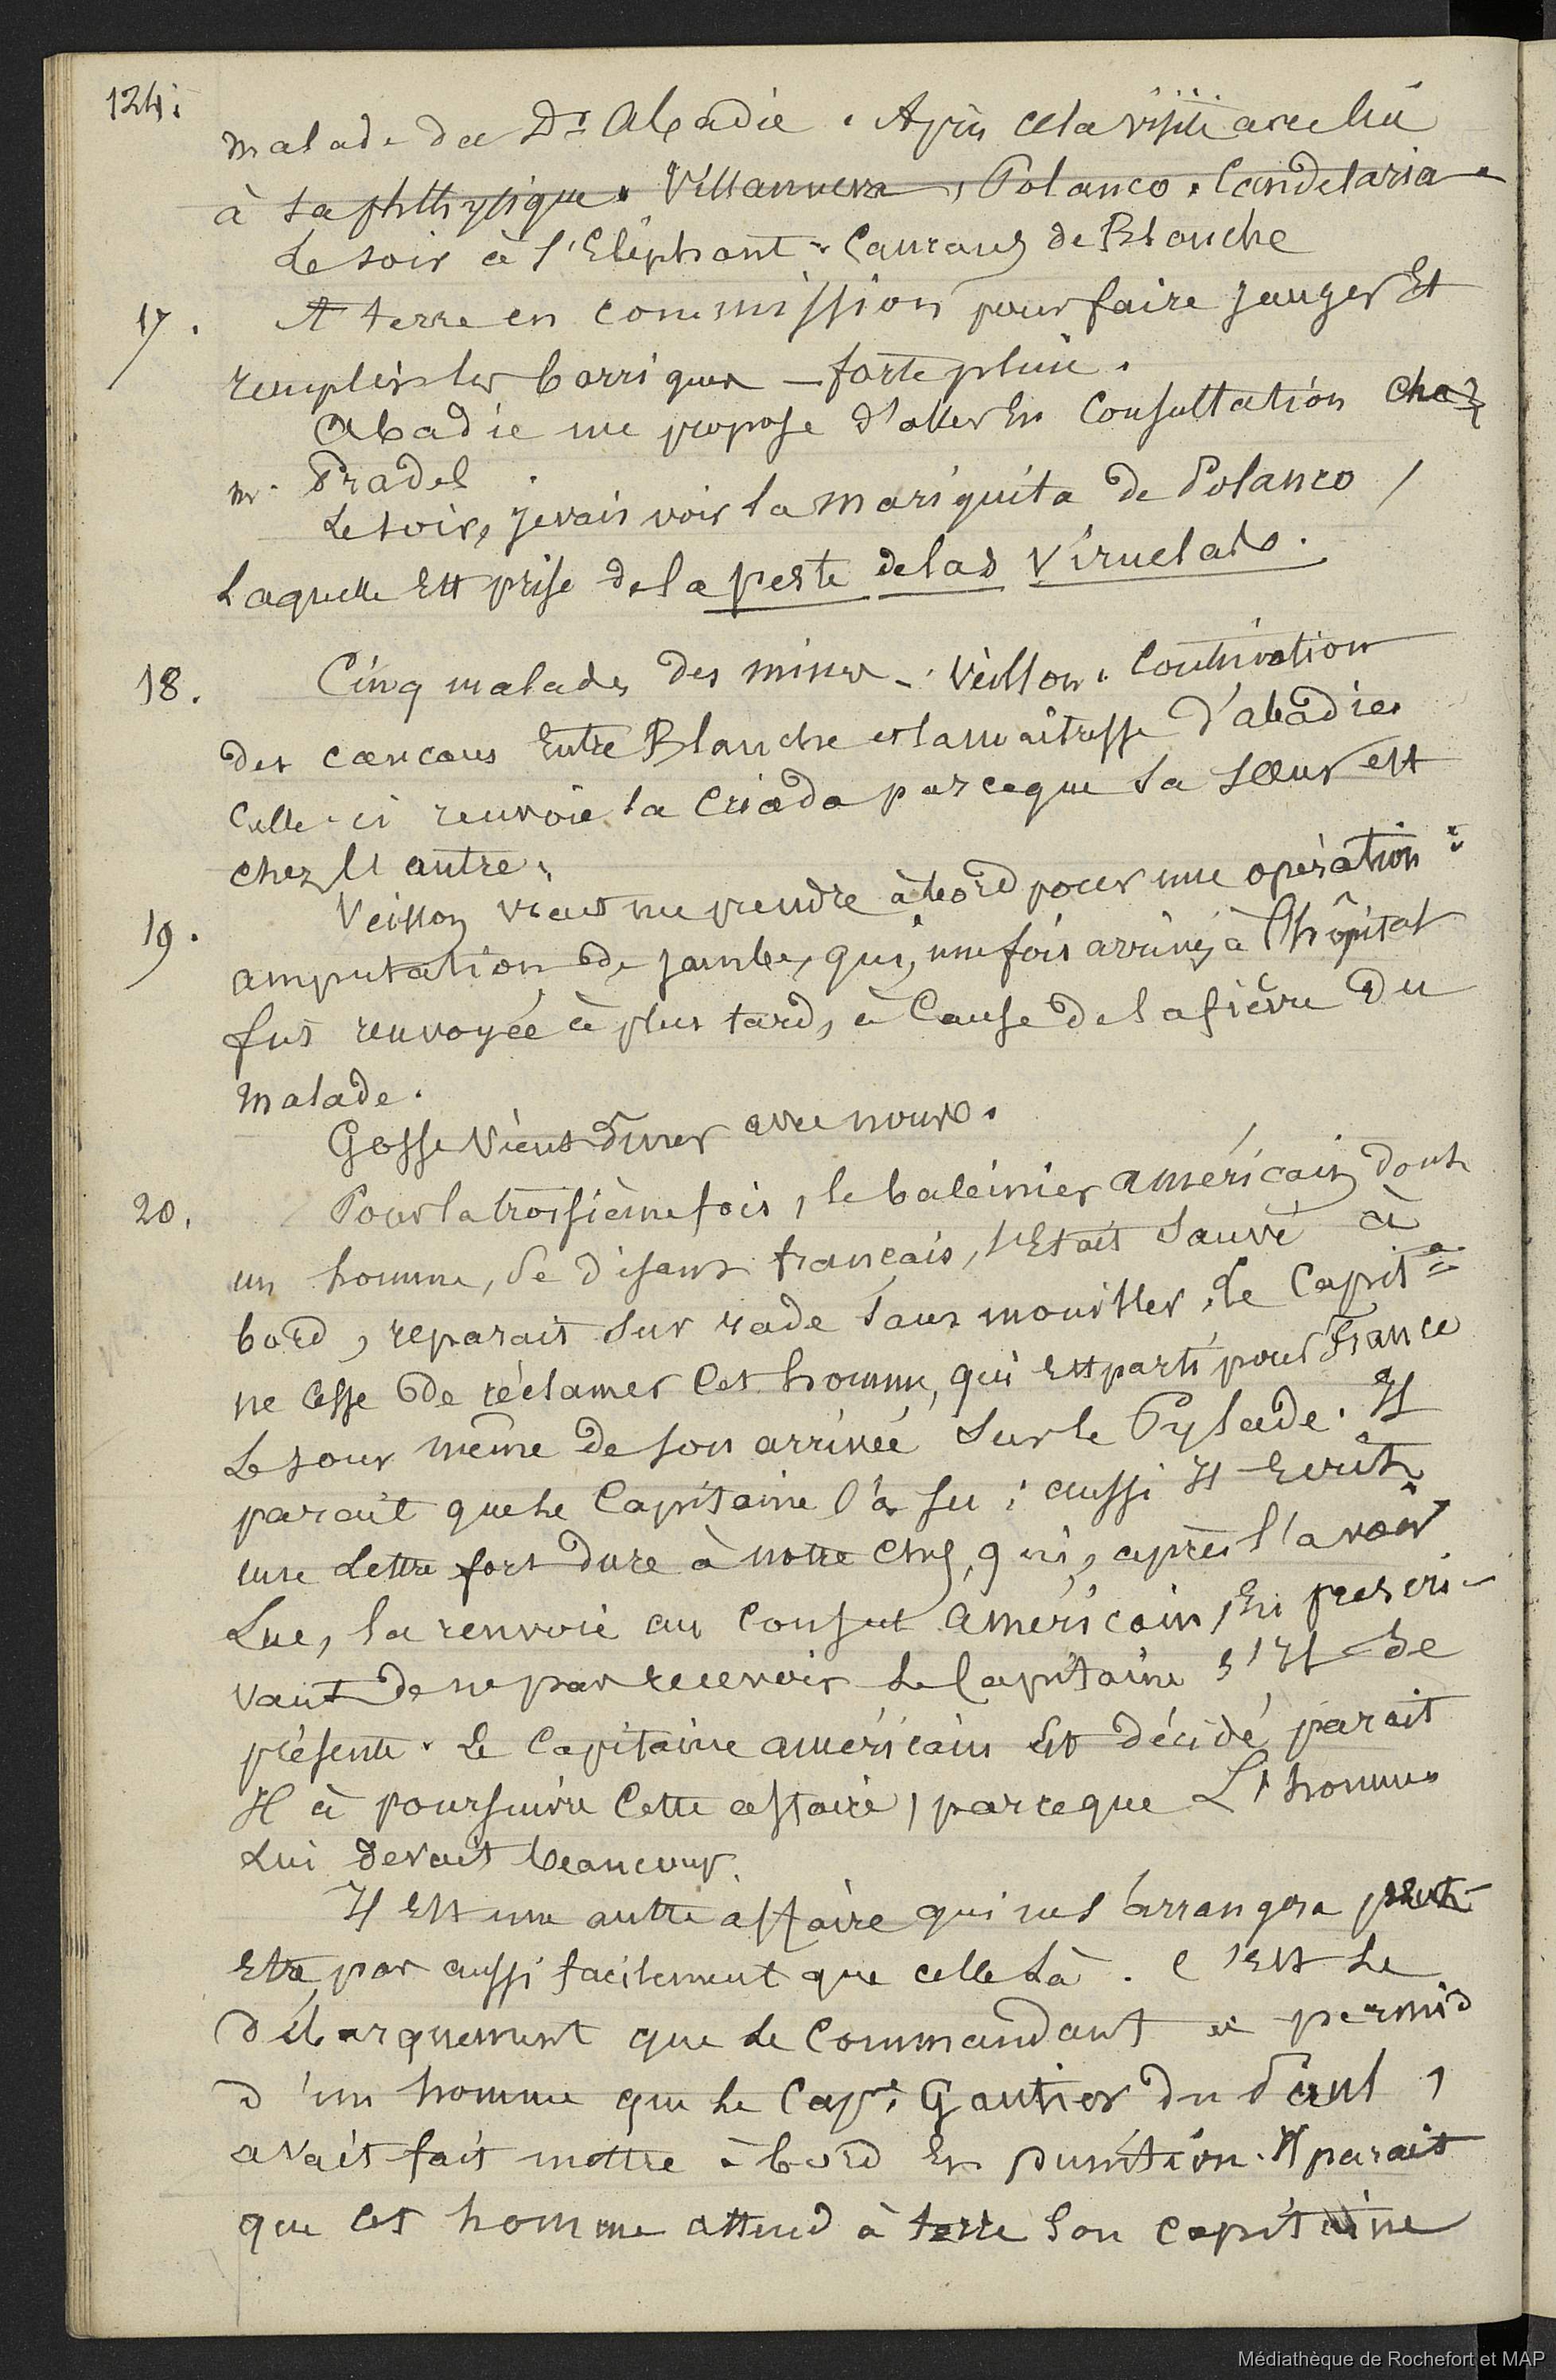 124.
malade du Dr Abadie. Après cela visite avec lui
à sa phthysique. Villanueva, Polanco. Candelaria.
Le soir à l'Eléphant. Cancans de Blanche
17. A terre en commission pour faire jauger Et
remplir les barriques – forte pluie.
Abadie me propose d'aller En Consultation chez
mr. Pradel.
Le soir, je vais voir la mariquita de Polanco,
Laquelle Est prise de la peste de las Viruelas.
18. Cinq malades des mines – Veillon. Continuation
des cancans Entre Blanche et la maîtresse d'abadie.
Celle-ci renvoie la Criada parceque sa sœur est
chez l'autre.
19. Veillon vient me prendre à bord pour une opération :
amputation de jambe, qui, une fois arrivés à l'hôpital
fut renvoyée à plus tard, à Cause de la fièvre du
malade.
Gosse vient diner avec nous.
20. Pour la troisième fois, le baleinier américain dont
un homme, se disant français, s'Etait sauvé à
bord, reparait sur rade sans mouiller. Le Capit=
ne Cesse de réclamer Cet homme, qui Est parti pour France
Le jour même de son arrivée sur le Pylade. Il
parait que le Capitaine l'a su ; aussi Il Ecrit
une Lettre fort dure à notre chef, qui, après l'avoir
Lue, la renvoie au Consul américain, En prescri-
vant de ne pas recevoir Le Capitaine s'Il se
présente. Le Capitaine américain Est décidé parait
Il à poursuivre Cette affaire, parceque L'homme
Lui devait beaucoup.
Il Est une autre affaire qui ne s'arrangera peut-
Etre pas aussi facilement que celle Là. C'Est Le
débarquement que Le Commandant a permis
d'un homme que Le Cape. Gautier du Paul,
avait fait mettre à bord En punition. Il parait
que Cet homme attend à terre son capitaine
Médiathèque de Rochefort et MAP